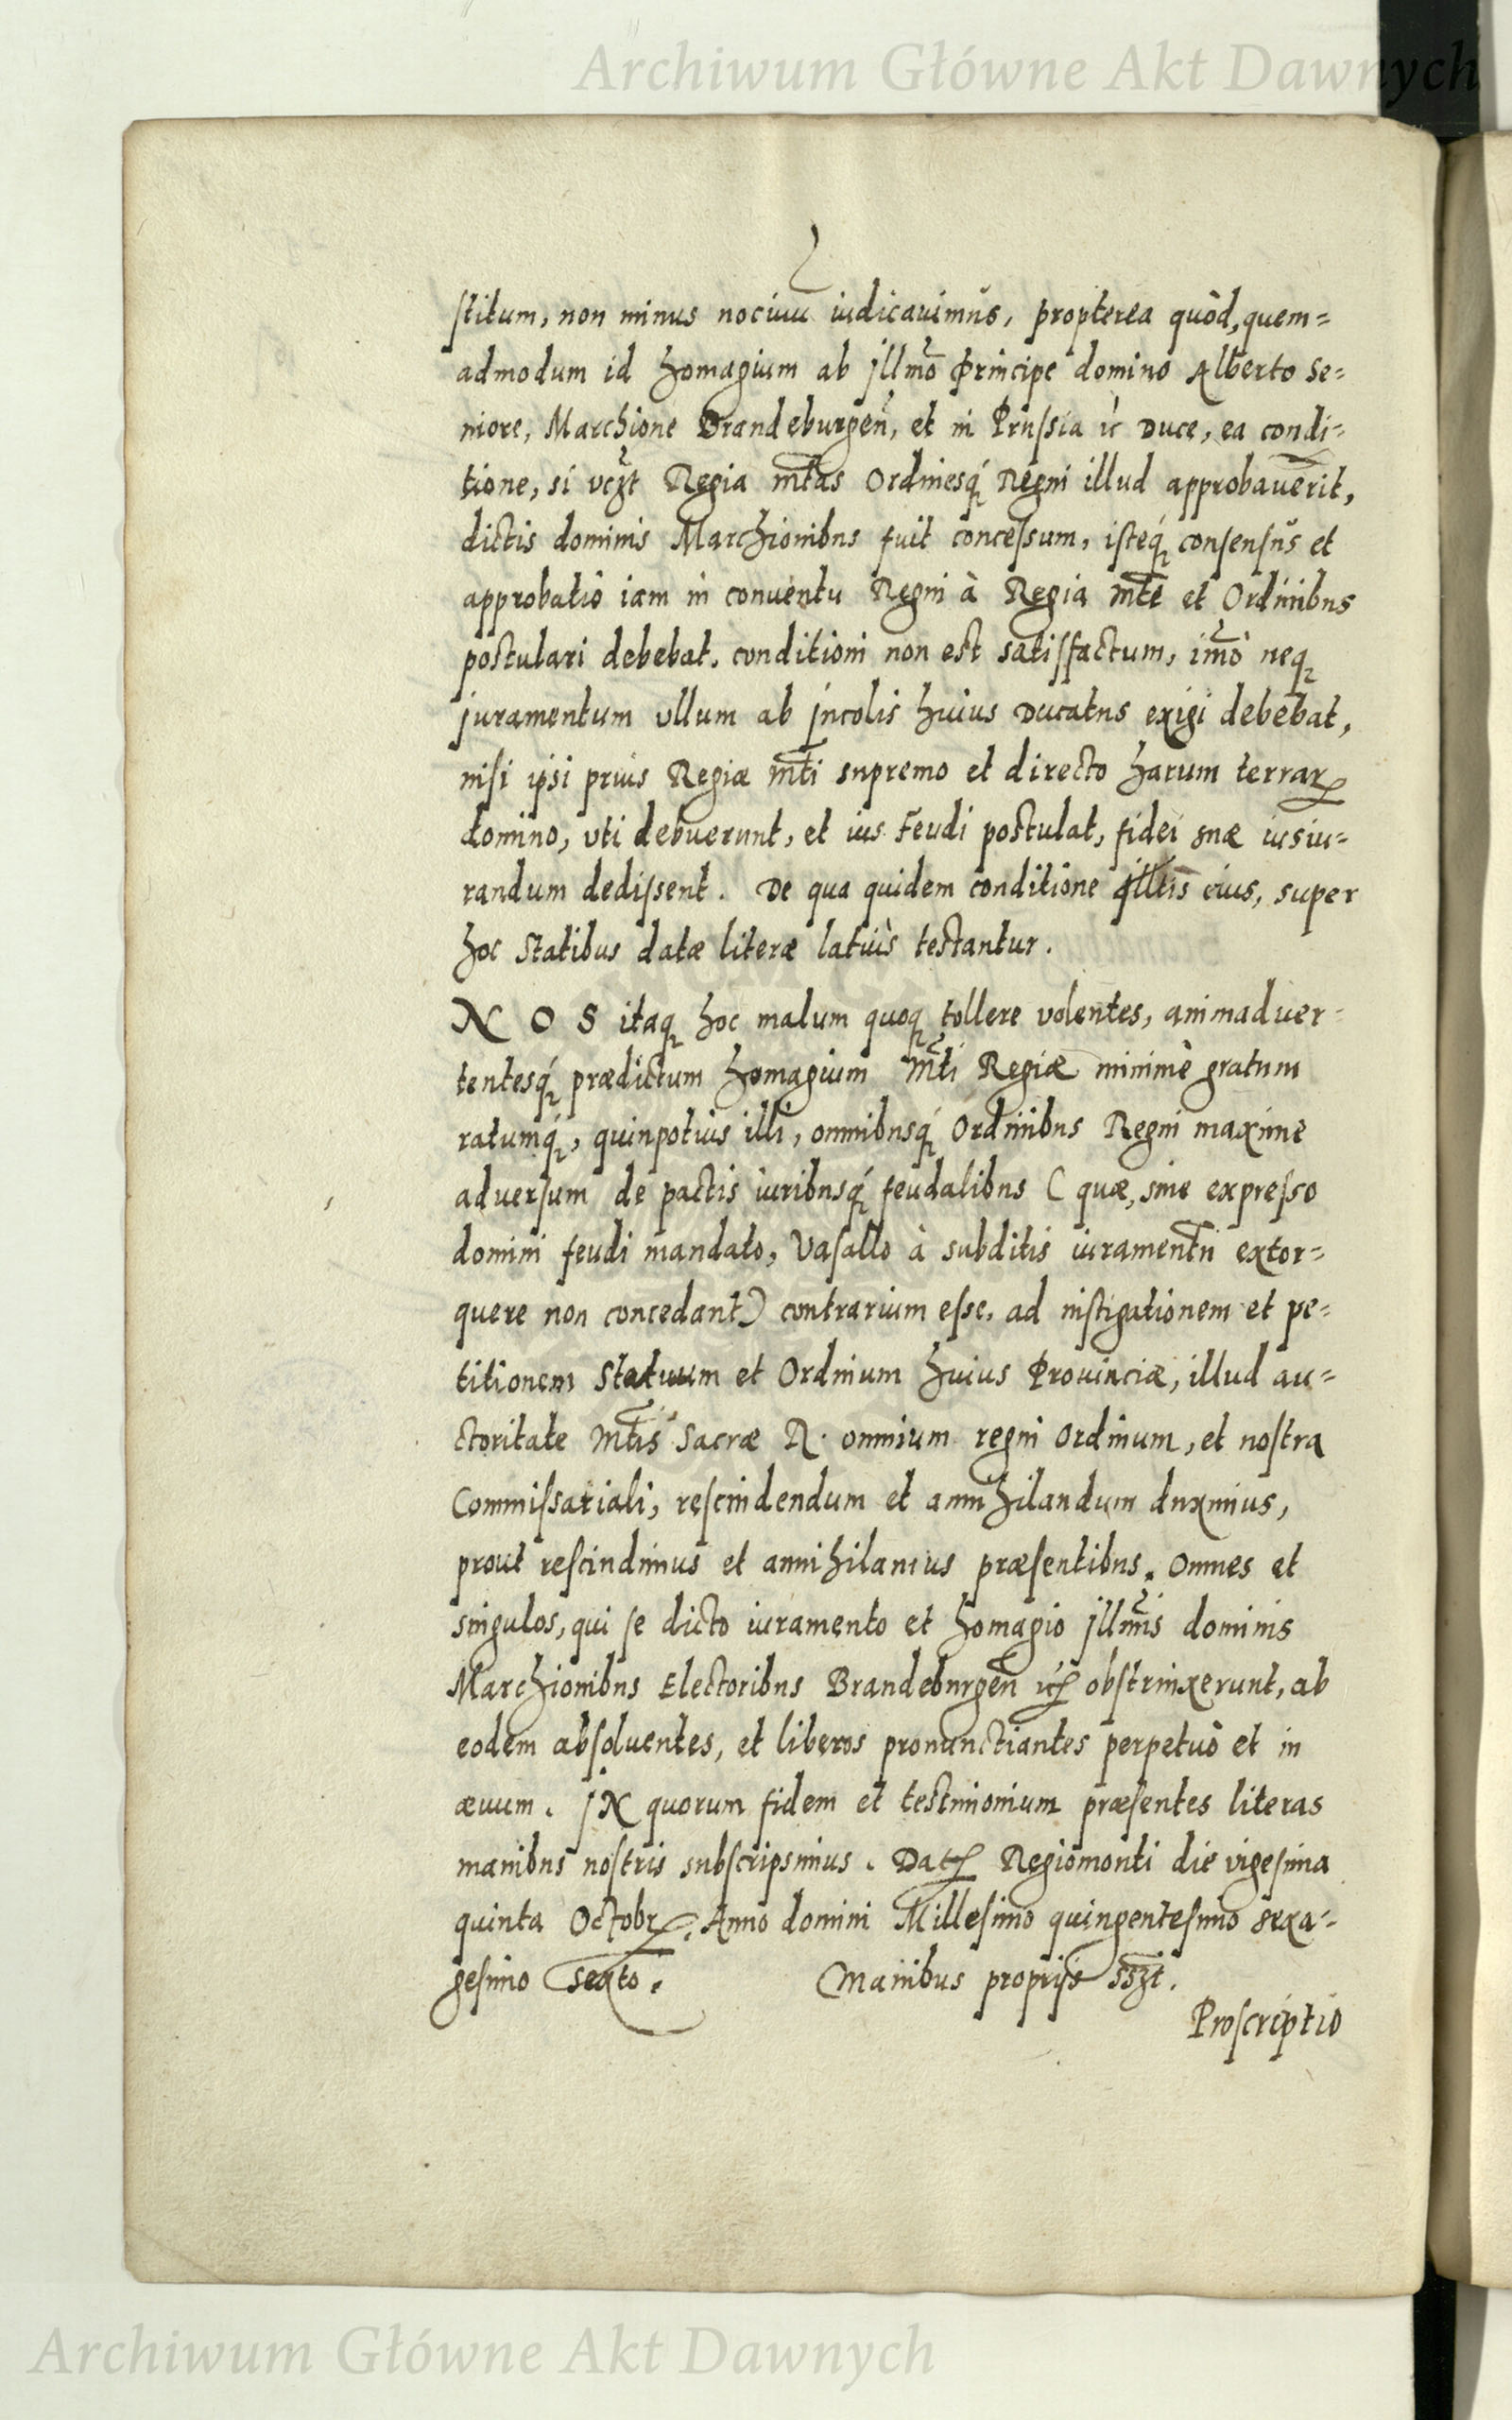 Archiwum Główne Akt Dawnych
ſtitum, non minus nociuū iudicauimus, propterea quòd, quem=
admodum id homagium ab Jllmo Principe domino Alberto Se=
niore, Marchione Brandeburgen̄, et in Pruſsia ꝛc Duce, ea condi=
tione, si vcʒt Regia mt̄as Ordinesq́ꝫ Regni illud approbauerit,
dictis dominis Marchionibus fuit conceſsum, iſteq́ꝫ conſenſus et
approbatio iam in conuentu Regni à Regia mt̄e et Ordinibus
postulari debebat. conditioni non est satiſfactum, imò neqꝫ
juramentum vllum ab Jncolis huius Ducatus exigi debebat,
niſi ipſi prius Regiæ mt̄i supremo et directo harum terrarꝝ
domino, vti debuerunt, et ius Feudi postulat, fidei suæ iusiu=
randum dediſsent. De qua quidem conditione Jlltis eius, super
hoc Statibus datæ literæ latiùs testantur.
NOS itaqꝫ hoc malum quoqꝫ tollere volentes, animaduer=
tentesq́ꝫ prædictum homagium Mt̄i Regiæ minimè gratum
ratumq́ꝫ, quinpotius illi, omnibusq́ꝫ Ordinibus Regni maxime
aduerſum de pactis iuribusq́ꝫ feudalibus (quæ, sine expreſso
domini feudi mandato, Vaſallo à subditis iuramentū extor=
quere non concedant) contrarium eſse. ad inſtigationem et pe=
titionem Statuum et Ordinum huius Prouinciæ, illud au=
ctoritate Mt̄is Sacræ R. omnium regni Ordinum, et noſtra
Commiſsariali, reſcindendum et annihilandum duximus,
prout reſcindimus et annihilamus præſentibus. Omnes et
singulos, qui ſe dicto iuramento et homagio Jllmis dominis
Marchionibus Electoribus Brandeburgen̄ ꝛcꝭ obſtrinxerunt, ab
eodem abſoluentes, et liberos pronunctiantes perpetuò et in
æuum. JN quorum fidem et testimonium præſentes literas
manibus noſtris subſcripsimus. Datꝭ Regiomonti die vigeſima
quinta Octobrꝭ. Anno domini Milleſimo quingenteſimo sexa=
geſimo Sexto. Manibus proprijs sszt.
Proſcriptio
Archiwum Główne Akt Dawnych